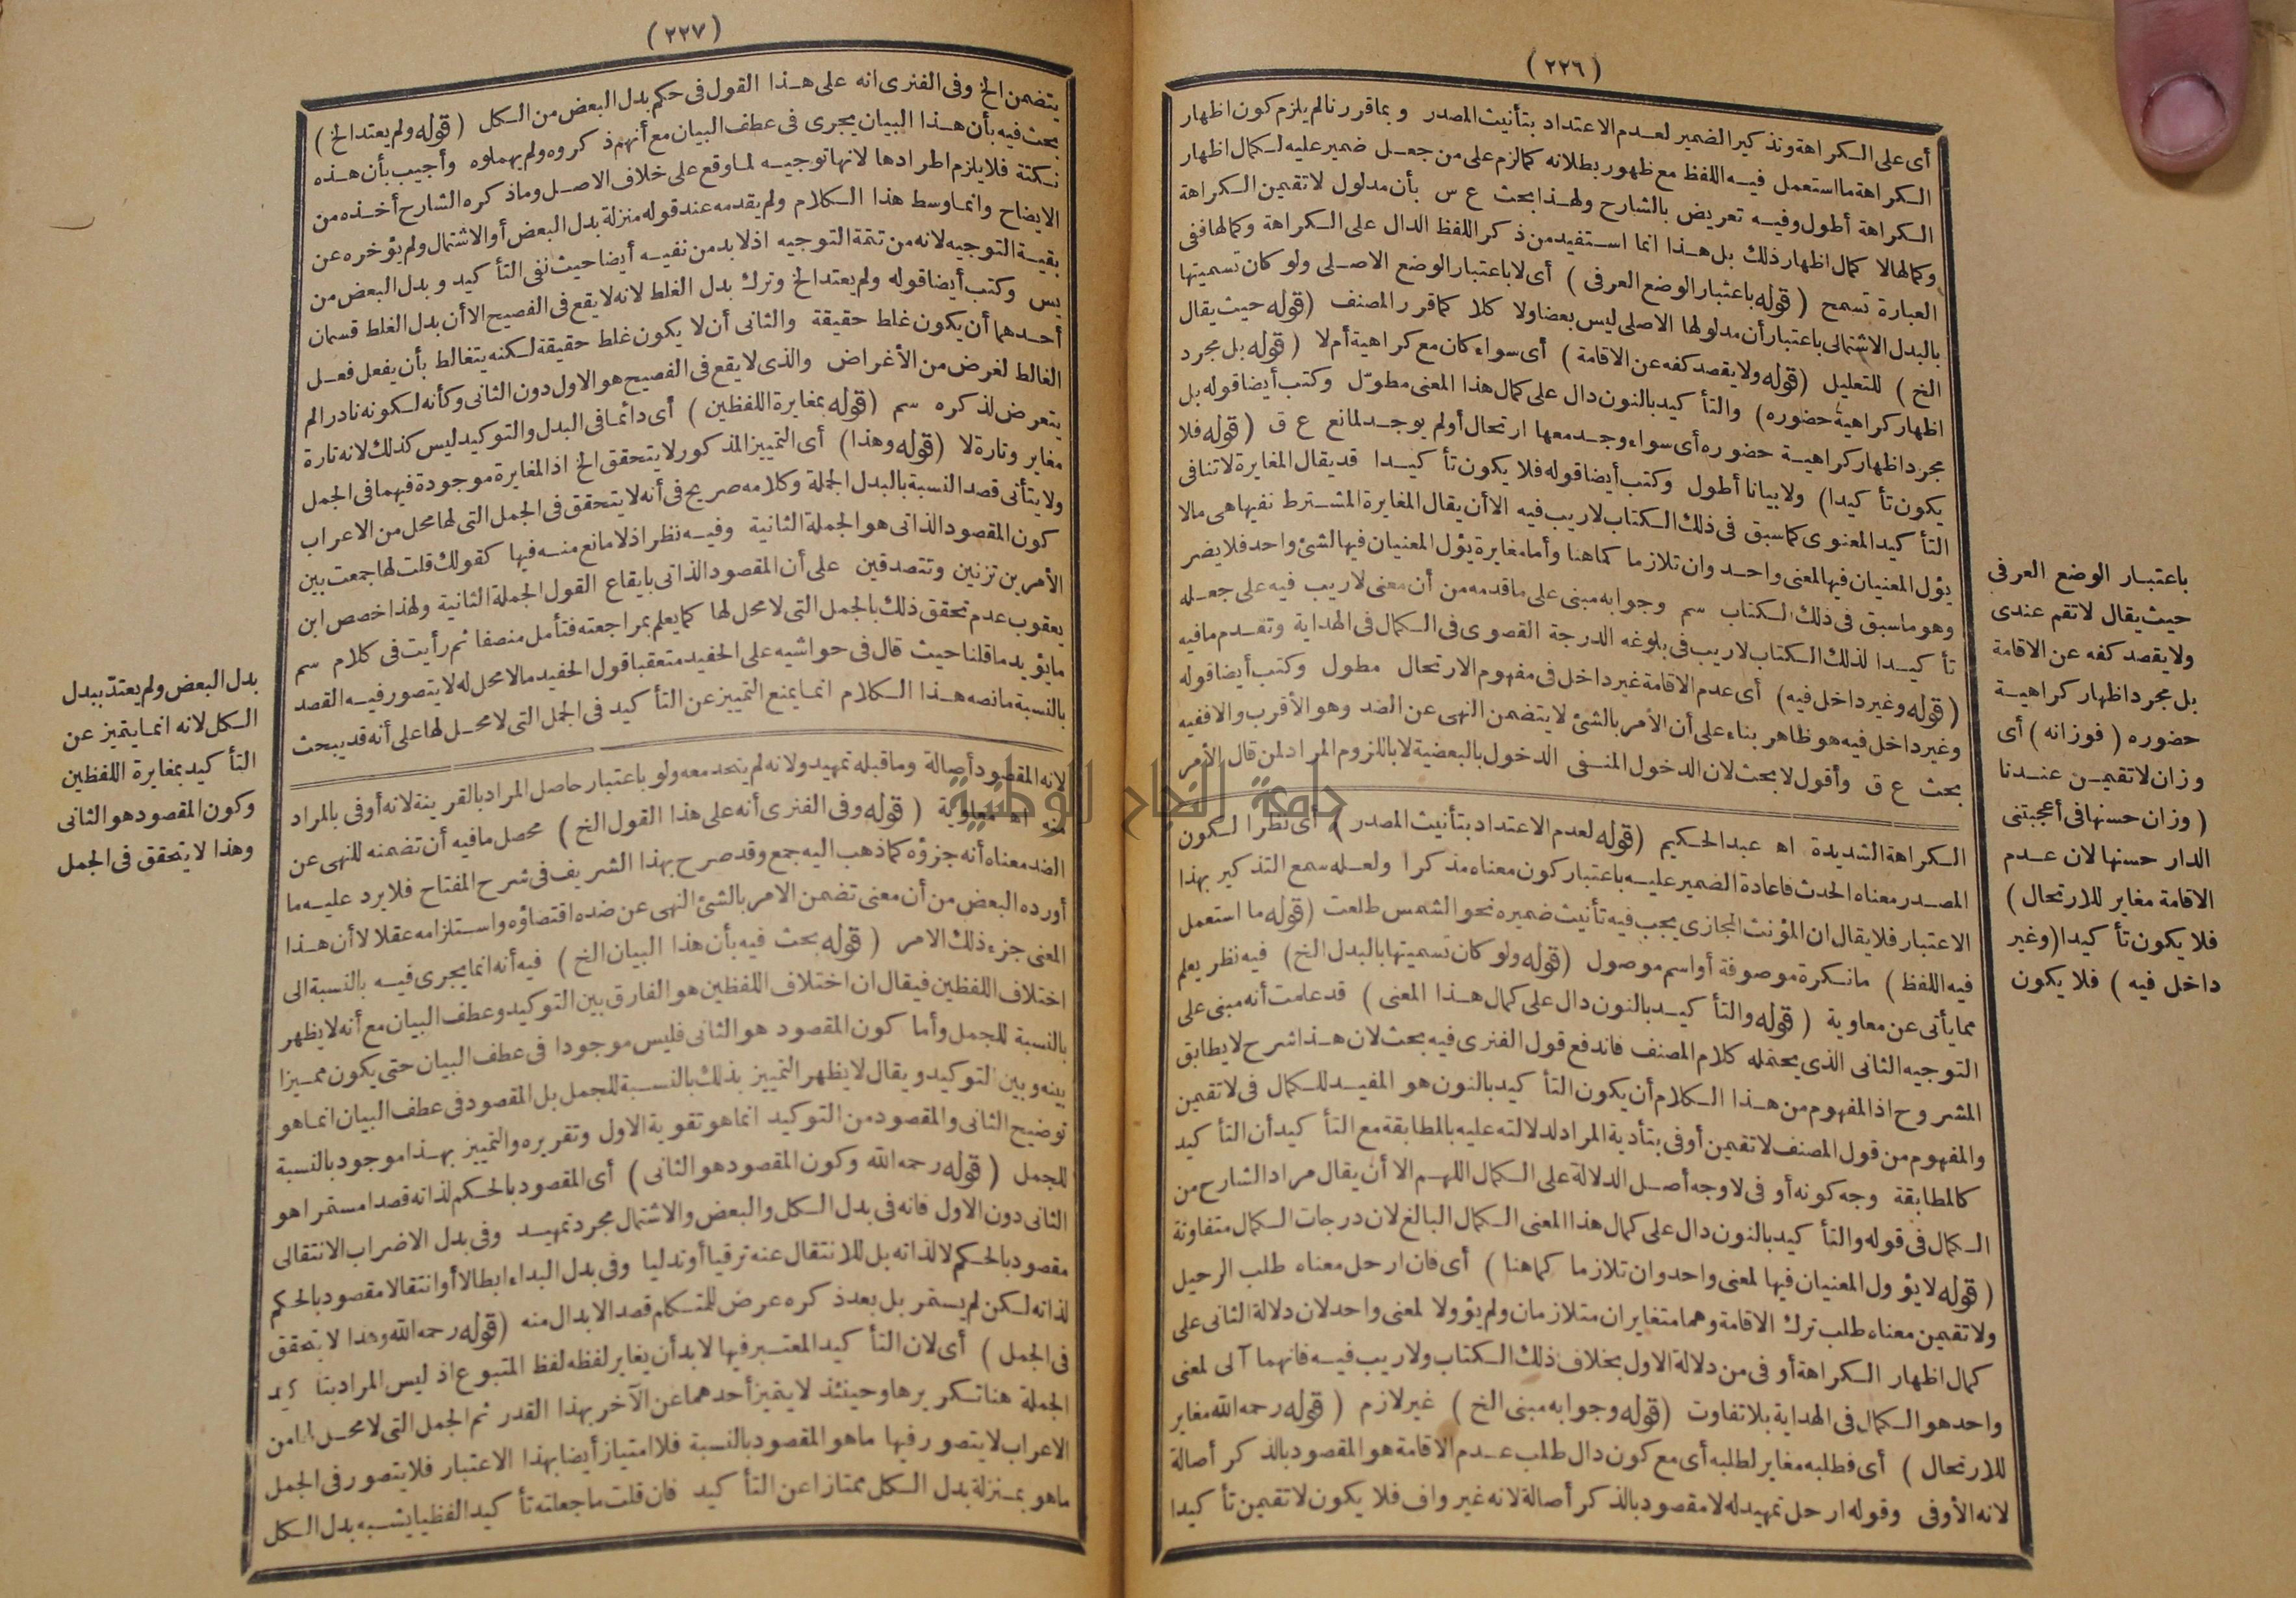 (٢٢٦)
أى على الكراهة وتذكير الضمير لعدم الاعتداد بتأنيث المصدر وبما قررنا لم يلزم كون اظهار
الكراهة ما استعمل فيه اللفظ مع ظهور بطلانه كما لزم على من جعل ضمير عليه لكمال اظهار
الكراهة أطول وفيه تعريض بالشارح ولهذا بحث ع س بأن مدلول لا تقيمن الكراهة
وكمالها لا كمال اظهار ذلك بل هذا انما استفيد من ذكر اللفظ الدال على الكراهة وكمالها ففى
العبارة تسمح (قوله باعتبار الوضع العرفى) أى لا باعتبار الوضع الاصلى ولو كان تسميتها
بالبدل الاشتمالى باعتبار أن مدلولها الاصلى ليس بعضا ولا كلا كما قرر المصنف (قوله حيث يقال
الخ) للتعليل (قوله ولا يقصد كفه عن الاقامة) أى سواء كان مع كراهية أم لا (قوله بل مجرد
اظهار كراهية حضوره) والتأكيد بالنون دال على كمال هذا المعنى مطوّل وكتب أيضا قوله بل
مجرد اظهار كراهية حضوره أى سواء وجد معها ارتحال أولم يوجد لمانع ع ق (قوله فلا
يكون تأكيدا) ولا بيانا أطول وكتب أيضا قوله فلا يكون تأكيدا قد يقال المغايرة لا تنافى
التأكيد المعنوى كما سبق فى ذلك الكتاب لا ريب فيه الا أن يقال المغايرة المشترط نفيها هى ما لا
يؤل المعنيان فيها لمعنى واحد وان تلازما كما هنا وأما مغايرة يؤل المعنيان فيها لشئ واحد فلا يضر
وهو ما سبق فى ذلك الكتاب سم وجوابه مبنى على ما قدمه من أن معنى لا ريب فيه على جعله
تأكيدا لذلك الكتاب لا ريب فى بلوغه الدرجة القصوى فى الكمال فى الهداية وتقدم ما فيه
(قوله وغير داخل فيه) أى عدم الاقامة غير داخل فى مفهوم الارتحال مطول وكتب أيضا قوله
وغير داخل فيه هو ظاهر بناء على أن الأمر بالشئ لا يتضمن النهى عن الضد وهو الأقرب والا ففيه
بحث ع ق وأقول لا بحث لان الدخول المنفى الدخول بالبعضية لا باللزوم المراد لمن قال الأمر
الكراهة الشديدة اه عبد الحكيم (قوله لعدم الاعتداد بتأنيث المصدر) أى نظرا لكون
المصدر معناه الحدث فاعادة الضمير عليه باعتبار كون معناه مذكرا ولعله سمع التذكير بهذا
الاعتبار فلا يقال ان المؤنث المجازى يجب فيه تأنيث ضميره نحو الشمس طلعت (قوله ما استعمل
فيه اللفظ) ما نكرة موصوفة أو اسم موصول (قوله ولو كان تسميتها بالبدل الخ) فيه نظر يعلم
مما يأتى عن معاوية (قوله والتأكيد بالنون دال على كمال هذا المعنى) قد علمت أنه مبنى على
التوجيه الثانى الذى يحتمله كلام المصنف فاندفع قول الفنرى فيه بحث لان هذا شرح لا يطابق
المشروح اذ المفهوم من هذا الكلام أن يكون التأكيد بالنون هو المفيد للكمال فى لا تقيمن
والمفهوم من قول المصنف لا تقيمن أوفى بتأدية المراد لدلالته عليه بالمطابقة مع التأكيد أن التأكيد
كالمطابقة وجه كونه أوفى لا وجه أصل الدلالة على الكمال اللهم الا أن يقال مراد الشارح من
الكمال فى قوله والتأكيد بالنون دال على كمال هذا المعنى الكمال البالغ لان درجات الكمال متفاوتة
(قوله لا يؤول المعنيان فيها لمعنى واحد وان تلازما كما هنا) أى فان ارحل معناه طلب الرحيل
ولا تقيمن معناه طلب ترك الاقامة وهما متغايران متلازمان ولم يؤولا لمعنى واحد لان دلالة الثانى على
كمال اظهار الكراهة أوفى من دلالة الاول بخلاف ذلك الكتاب ولا ريب فيه فانهما آلى لمعنى
واحد هو الكمال فى الهداية بلا تفاوت (قوله وجوابه مبنى الخ) غير لازم (قوله رحمه الله مغاير
للارتحال) أى فطلبه مغاير لطلبه أى مع كون دال طلب عدم الاقامة هو المقصود بالذكر أصالة
لانه الأوفى وقوله ارحل تمهيد له لا مقصود بالذكر أصالة لانه غير واف فلا يكون لا تقيمن تأكيدا
باعتبار الوضع العرفى
حيث يقال لا تقم عندى
ولا يقصد كفه عن الاقامة
بل مجرد اظهار كراهية
حضوره (فوزانه) أى
وزان لا تقيمن عندنا
(وزان حسنها فى أعجبتنى
الدار حسنها لان عدم
الاقامة مغاير للارتحال)
فلا يكون تأكيدا (وغير
داخل فيه) فلا يكون
(٢٢٧)
يتضمن الخ وفى الفنرى انه على هذا القول فى حكم بدل البعض من الكل (قوله ولم يعتد الخ)
بحث فيه بأن هذا البيان يجرى فى عطف البيان مع أنهم ذكروه ولم يهملوه وأجيب بأن هذه
نكتة فلا يلزم اطرادها لانها توجيه لما وقع على خلاف الاصل وما ذكره الشارح أخذه من
الايضاح وانما وسط هذا الكلام ولم يقدمه عند قوله منزلة بدل البعض أو الاشتمال ولم يؤخره عن
بقية التوجيه لانه من تتمة التوجيه اذ لا بد من نفيه أيضا حيث نفى التأكيد وبدل البعض من
يس وكتب أيضا قوله ولم يعتد الخ وترك بدل الغلط لانه لا يقع فى الفصيح الا أن بدل الغلط قسمان
أحدهما أن يكون غلط حقيقة والثانى أن لا يكون غلط حقيقة لكنه يتغالط بأن يفعل فعل
الغالط لغرض من الأغراض والذى لا يقع فى الفصيح هو الاول دون الثانى وكأنه لكونه نادرا لم
يتعرض لذكره سم (قوله بمغايرة اللفظين) أى دائما فى البدل والتوكيد ليس كذلك لانه تارة
مغاير وتارة لا (قوله وهذا) أى التمييز المذكور لا يتحقق الخ اذ المغايرة موجودة فيهما فى الجمل
ولا يتأتى قصد النسبة بالبدل الجملة وكلامه صريح فى أنه لا يتحقق فى الجمل التى لها محل من الاعراب
كون المقصود الذاتى هو الجملة الثانية وفيه نظر اذ لا مانع منه فيها كقولك قلت لها جمعت بين
الأمرين تزنين وتتصدقين على أن المقصود الذاتى بايقاع القول الجملة الثانية ولهذا خصص ابن
يعقوب عدم تحقق ذلك بالجمل التى لا محل لها كما يعلم بمراجعته فتأمل منصفا ثم رأيت فى كلام سم
ما يؤيد ما قلنا حيث قال فى حواشيه على الحفيد متعقبا قول الحفيد ما لا محل له لا يتصور فيه القصد
بالنسبة ما نصه هذا الكلام انما يمنع التمييز عن التأكيد فى الجمل التى لا محل لها على أنه قد يبحث
لانه المقصود أصالة وما قبله تمهيد ولانه لم يتحد معه ولو باعتبار حاصل المراد بالقرينة لانه أوفى بالمراد
منه اه معاوية (قوله وفى الفنرى أنه على هذا القول الخ) محصل ما فيه أن تضمنه للنهى عن
الضد معناه أنه جزؤه كما ذهب اليه جمع وقد صرح بهذا الشريف فى شرح المفتاح فلا يرد عليه ما
أورده البعض من أن معنى تضمن الامر بالشئ النهى عن ضده اقتضاؤه واستلزامه عقلا لا أن هذا
المعنى جزء ذلك الامر (قوله بحث فيه بأن هذا البيان الخ) فيه أنه انما يجرى فيه بالنسبة الى
اختلاف اللفظين فيقال ان اختلاف اللفظين هو الفارق بين التوكيد وعطف البيان مع أنه لا يظهر
بالنسبة للجمل وأما كون المقصود هو الثانى فليس موجودا فى عطف البيان حتى يكون مميزا
بينه وبين التوكيد ويقال لا يظهر التمييز بذلك بالنسبة للجمل بل المقصود فى عطف البيان انما هو
توضيح الثانى والمقصود من التوكيد انما هو تقوية الاول وتقريره والتمييز بهذا موجود بالنسبة
للجمل (قوله رحمه الله وكون المقصود هو الثانى) أى المقصود بالحكم لذاته قصدا مستمرا هو
الثانى دون الاول فانه فى بدل الكل والبعض والاشتمال مجرد تمهيد وفى بدل الاضراب الانتقالى
مقصود بالحكم لا لذاته بل للانتقال عنه ترقيا أو تدليا وفى بدل البداء ابطالا أو انتقالا مقصود بالحكم
لذاته لكن لم يستمر بل بعد ذكره عرض للمتكلم قصد الابدال منه (قوله رحمه الله وهذا لا يتحقق
فى الجمل) أى لان التأكيد المعتبر فيها لا بد أن يغاير لفظه لفظ المتبوع اذ ليس المراد بتأكيد
الجملة هنا تكريرها وحينئذ لا يتميز أحدهما عن الآخر بهذا القدر ثم الجمل التى لا محل لها من
الاعراب لا يتصور فيها ما هو المقصود بالنسبة فلا امتياز أيضا بهذا الاعتبار فلا يتصور فى الجمل
ما هو بمنزلة بدل الكل ممتازا عن التأكيد فان قلت ما جعلته تأكيدا لفظيا يشبه بدل الكل
بدل البعض ولم يعتدّ ببدل
الكل لانه انما يتميز عن
التأكيد بمغايرة اللفظين
وكون المقصود هو الثانى
وهذا لا يتحقق فى الجمل
جامعة النجاح الوطنية